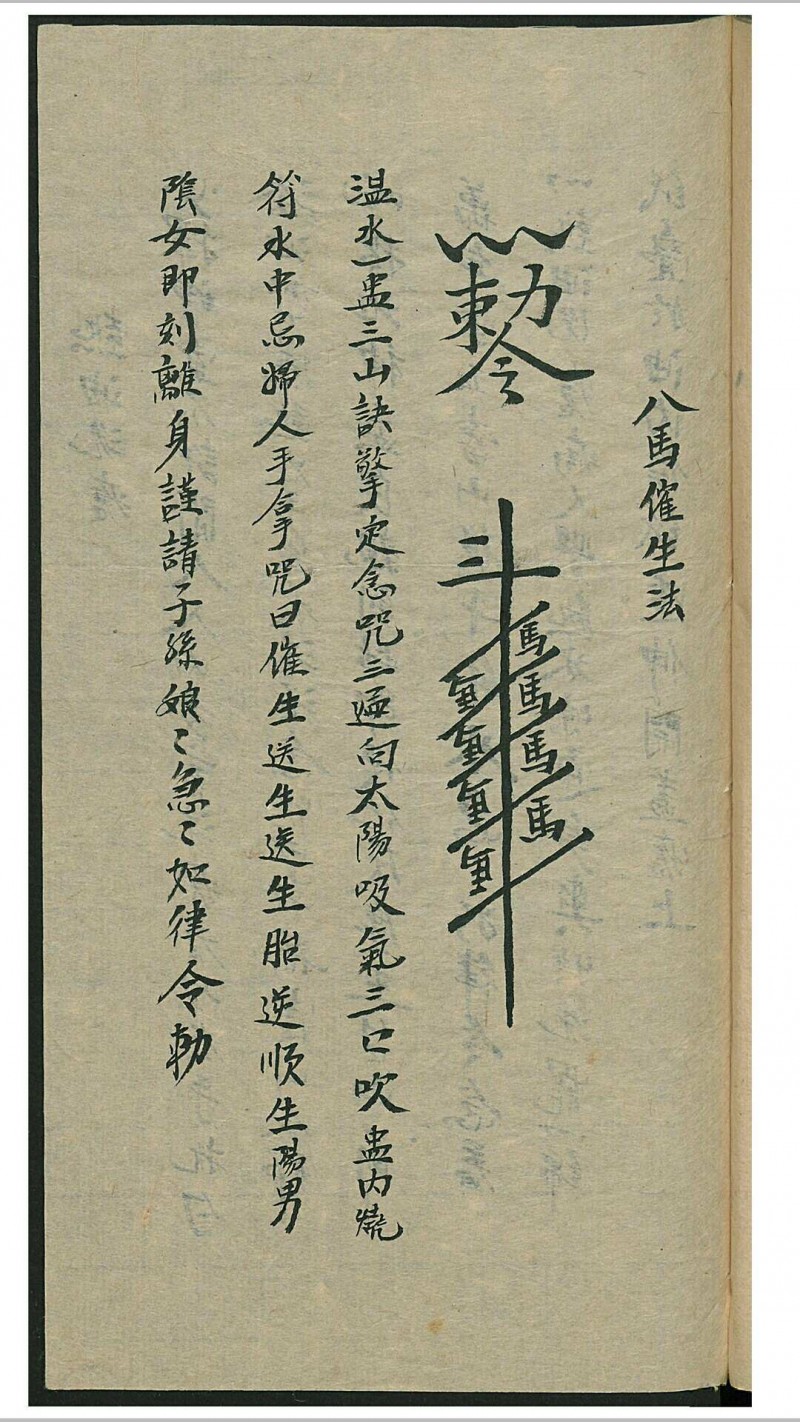 八馬催生法
勅令
馬馬馬馬
馬馬馬馬
温水一盅三山訣擎定念咒三遍向太陽吸氣三口吹盅内燒
符水中忌婦人手拿咒曰催生送生送生胎逆順生陽男
陰女即刻離身謹請子孫娘〻急〻如律令勅